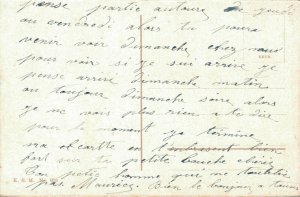 pense partie autour, le jeudi
ou vendredi alors tu poura
venir voir dimanche chez nous
pour voir si je sui arrivé je
pense arrivé dimanche matin
ou toujour dimanche soire alors
je ne vois plus rien a te dire
pour le moment je termine
ma carte en t'embrassent bien
fort sur ta petite bouche chérie
Ton petit homme qui ne t'oublie
pas Maurice. Bien le bonjour a tous